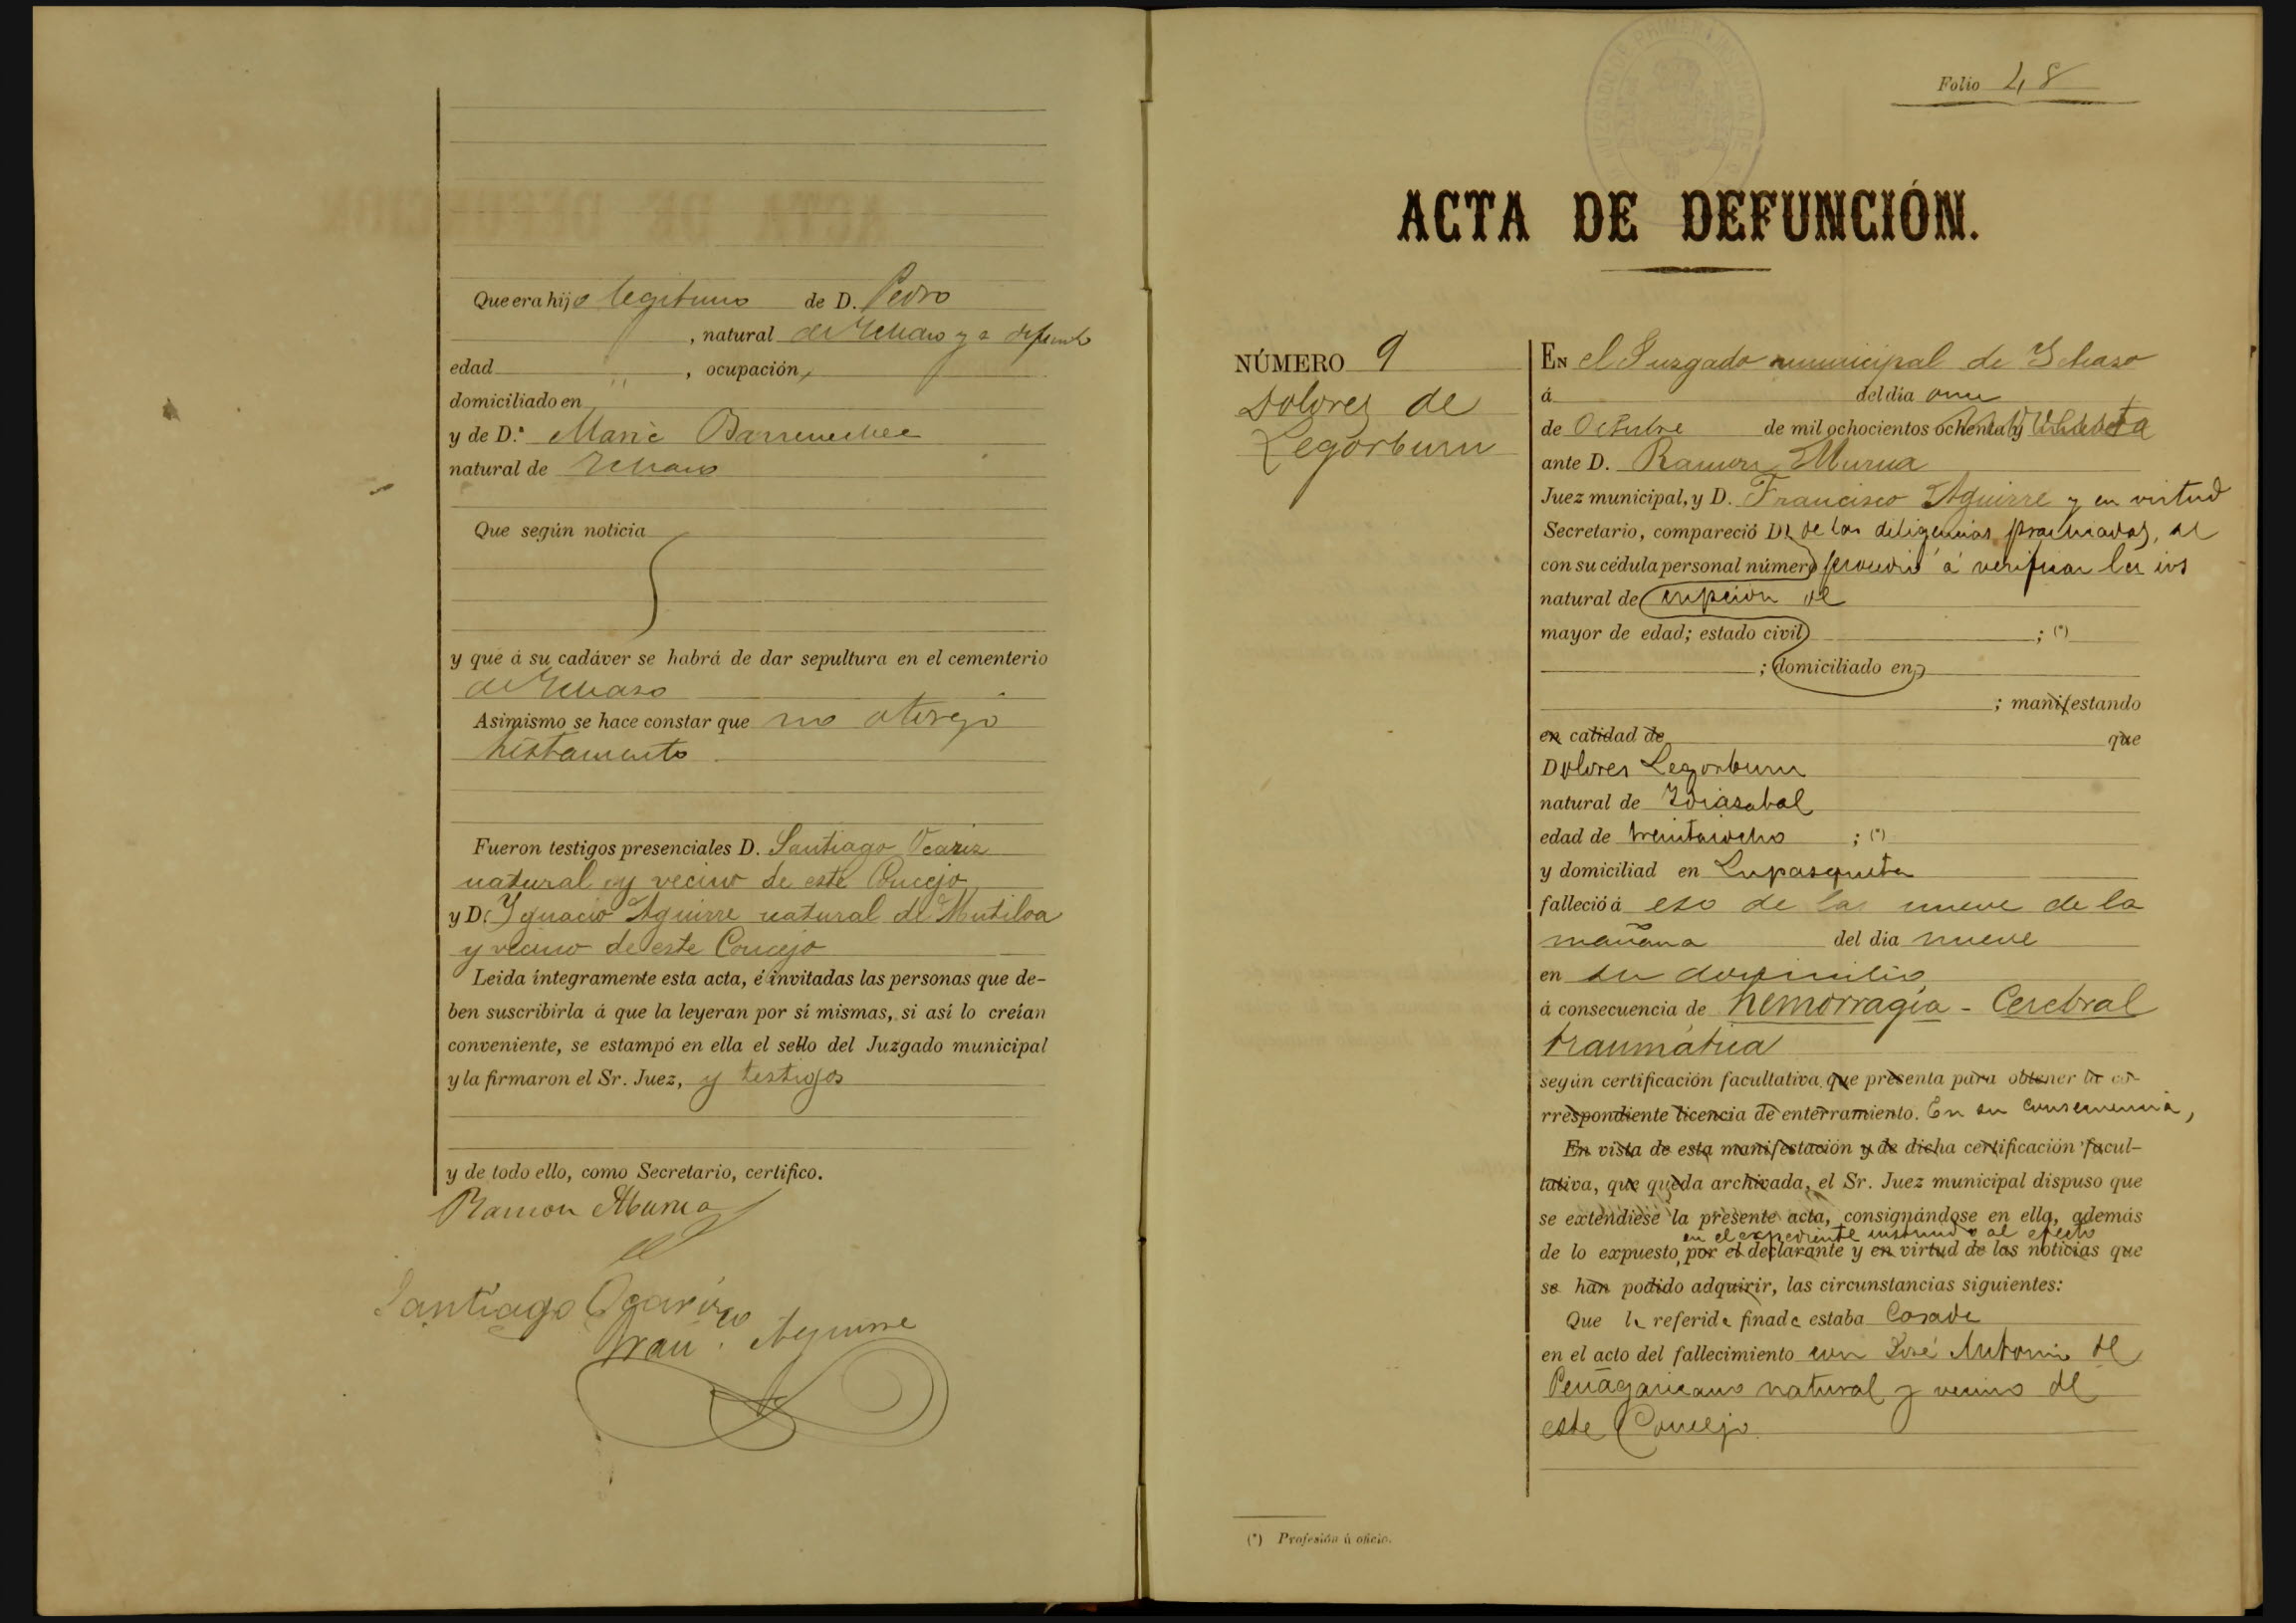 Que era hijo legitimo de D. Pedro
, natural de Ichaso ya difunto
edad " , ocupación
domiciliado en
y de D.ª Maria Barrenechea
natural de Ichaso
Que según noticia
y que á su cadáver se habrá de dar sepultura en el cementerio
de Ichaso
Asimismo se hace constar que no otorgó
testamento
Fueron testigos presenciales D. Santiago Ocariz
natural y vecino de este Concejo
y D. Ygnacio Aguirre natural de Mutiloa
y vecino de este Concejo
Leida íntegramente esta acta, é invitadas las personas que de-
ben suscribirla á que la leyeran por sí mismas, si así lo creían
conveniente, se estampó en ella el sello del Juzgado municipal
y la firmaron el Sr. Juez, y testigos
y de todo ello, como Secretario, certifico.
Ramon Murua
Santiago Ocariz
Fran.co Aguirre
Folio 48
ACTA DE DEFUNCIÓN.
NÚMERO 9
Dolores de
Legorburu
EN el Juzgado municipal de Ichaso
á del dia once
de Octubre de mil ochocientos ochenta y
ante D. Ramon Murua
Juez municipal, y D. Francisco Aguirre y en virtud
Secretario, compareció D. de las diligencias practicadas, se
con su cédula personal número procedió á verificar la ins
natural de cripcion de
mayor de edad; estado civil ; (*)
; domiciliado en
; manifestando
en calidad de que
Dolores Legorburu
natural de Idiazabal
edad de treintaiocho ; (*)
y domiciliad en Lupasqueta
falleció á eso de las nueve de la
mañana del dia nueve
en su domicilio
á consecuencia de hemorragía - Cerebral
traumática
según certificación facultativa que presenta para obtener la co-
rrespondiente licencia de enterramiento. En su consecuencia,
En vista de esta manifestación y de dicha certificación facul-
tativa, que queda archivada, el Sr. Juez municipal dispuso que
se extendiese la presente acta, consignándose en ella, además
en el expediente instruido al efecto
de lo expuesto, por el declarante y en virtud de las noticias que
se han podido adquirir, las circunstancias siguientes:
Que la referida finada estaba Casada
en el acto del fallecimiento con José Antonio de
Penagaricano natural y vecino de
este Concejo
(*) Profesión ú oficio.